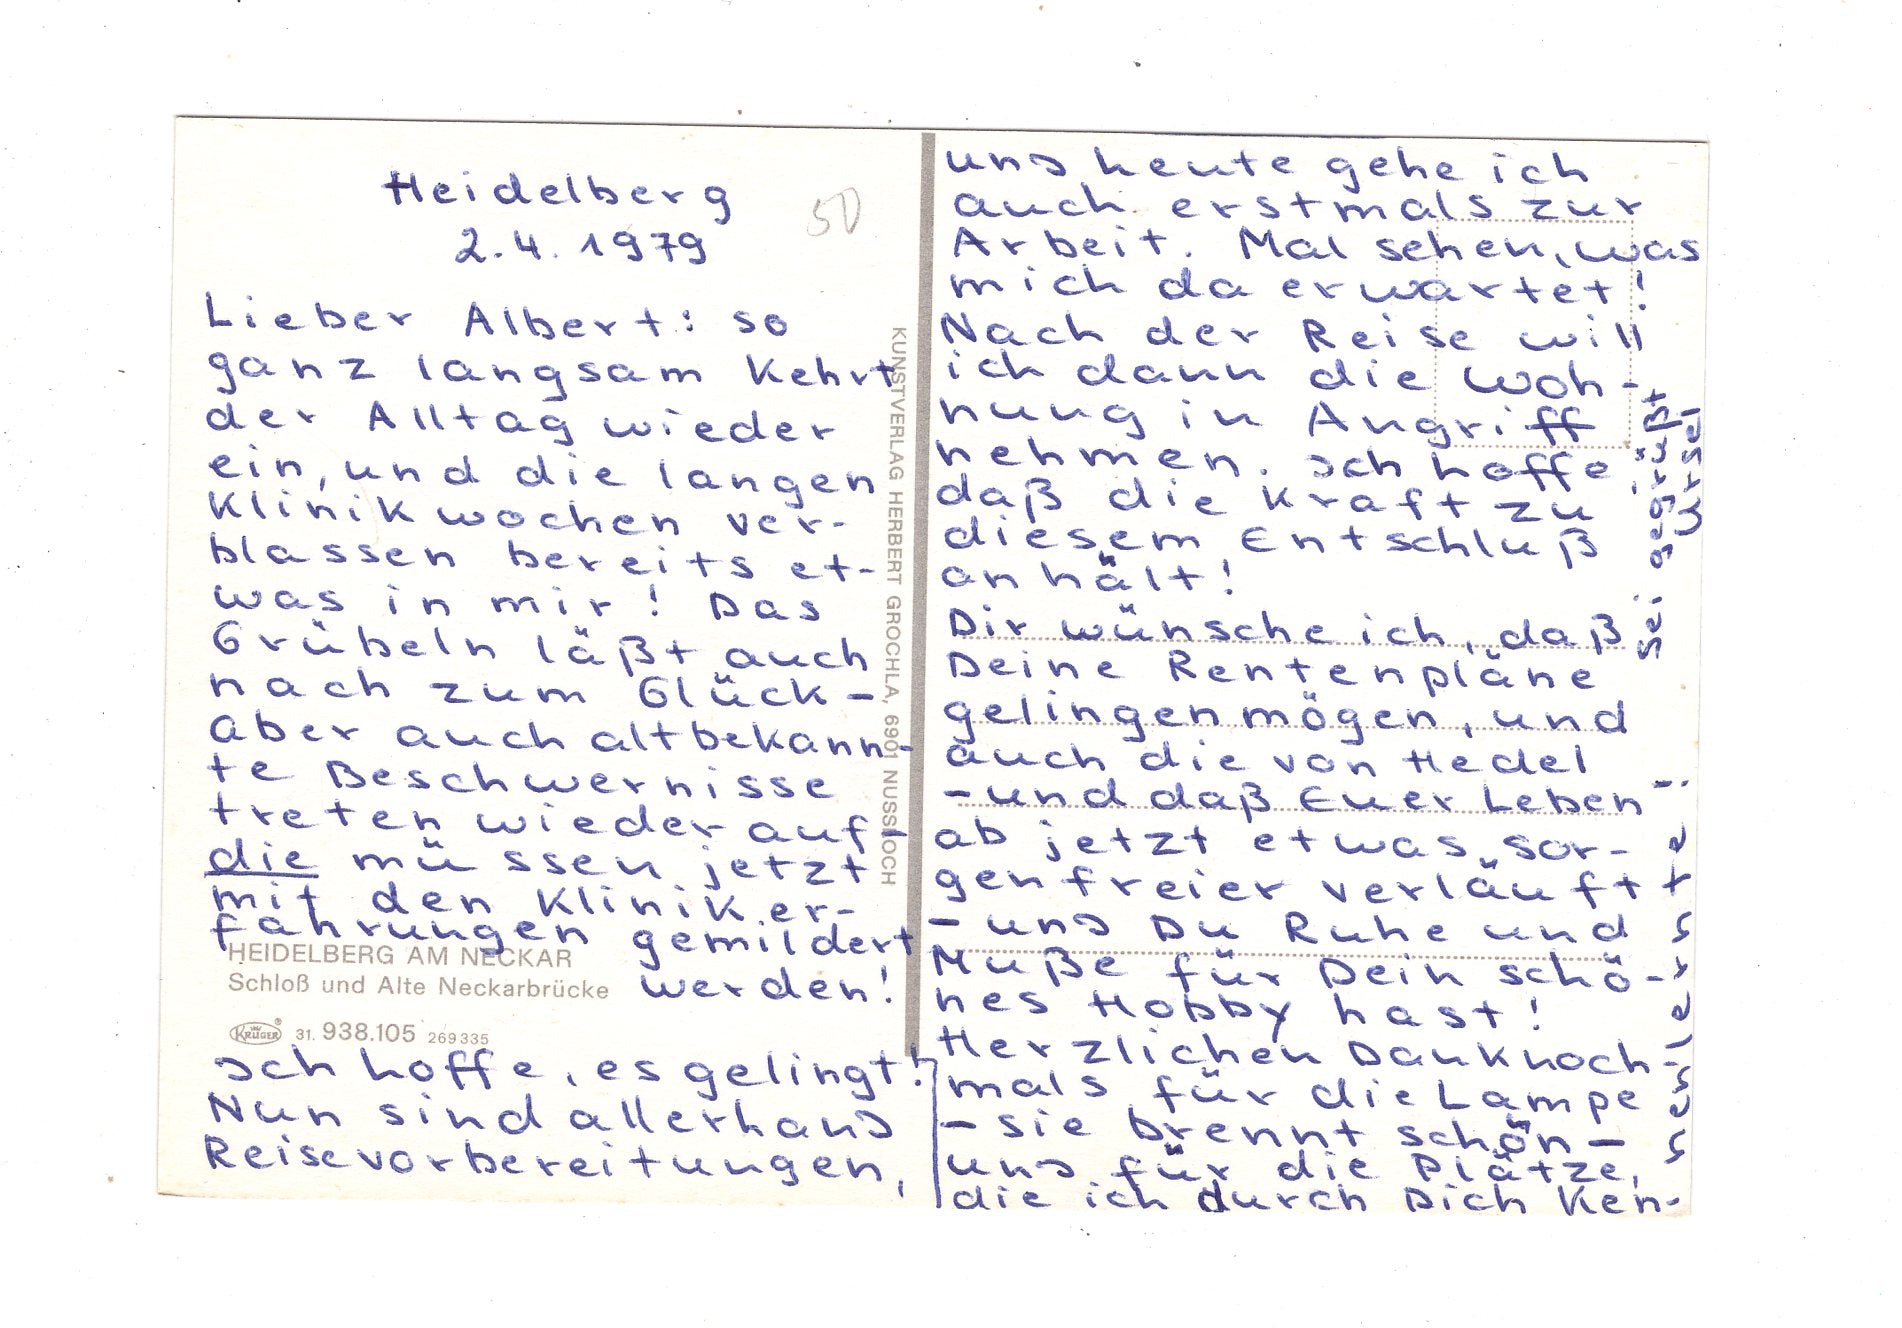 Heidelberg
2.4.1979
50
Lieber Albert: so
ganz langsam kehrt
der Alltag wieder
ein, und die langen
Klinikwochen ver-
blassen bereits et-
was in mir! Das
Grübeln läßt auch
nach zum Glück -
aber auch altbekann-
te Beschwernisse
treten wieder auf,
die müssen jetzt
mit den Kliniker-
fahrungen gemildert
werden!
HEIDELBERG AM NECKAR
Schloß und Alte Neckarbrücke
KRÜGER 31. 938.105 269335
Ich hoffe, es gelingt!
Nun sind allerhand
Reisevorbereitungen,
KUNSTVERLAG HERBERT GROCHLA, 6901 NUSSLOCH
und heute gehe ich
auch erstmals zur
Arbeit. Mal sehen, was
mich da erwartet!
Nach der Reise will
ich dann die Woh-
nung in Angriff
nehmen. Ich hoffe
daß die Kraft zu
diesem Entschluß
anhält!
Dir wünsche ich, daß
Deine Rentenpläne
gelingen mögen, und
auch die von Hedel
- und daß Euer Leben
ab jetzt etwas sor-
genfreier verläuft
- und Du Ruhe und
Muße für Dein schö-
nes Hobby hast!
Herzlichen Dank noch-
mals für die Lampe
- sie brennt schön -
und für die Plätze,
die ich durch Dich ken-
nenlernte!
Sei gegrüßt
Ursel